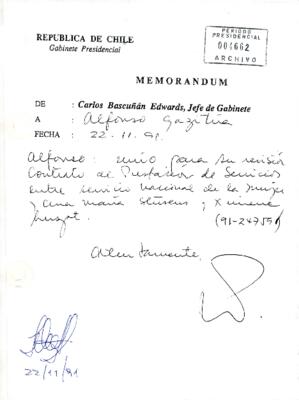 REPUBLICA DE CHILE
Gabinete Presidencial
PERIODO
PRESIDENCIAL
004662
ARCHIVO
MEMORANDUM
DE : Carlos Bascuñán Edwards, Jefe de Gabinete
A : Alfonso
FECHA : 22.11.91.
Alfonso: envío para su revisión
Contrato de Prestación de Servicios
entre servicio nacional de la mujer
y Ana María y Ximena
(91-24759)
Atentamente,
22/11/91